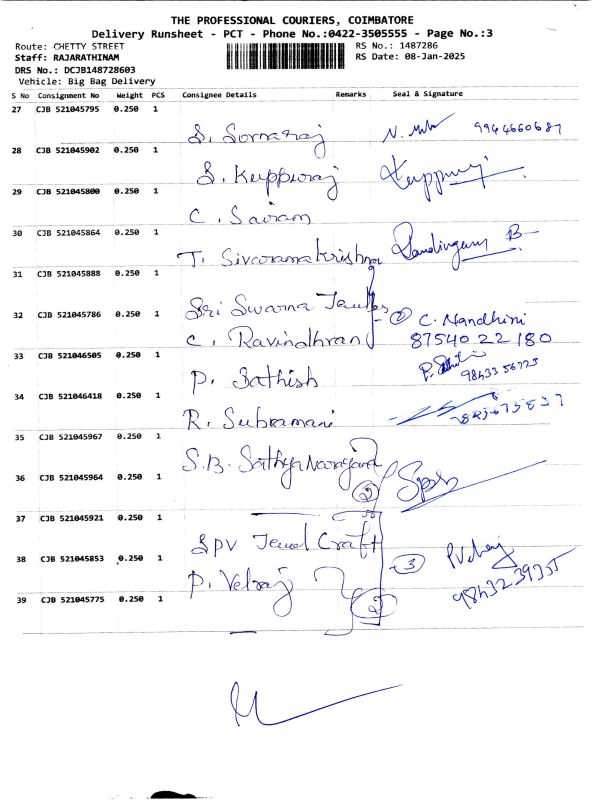 THE PROFESSIONAL COURIERS, COIMBATORE
Delivery Runsheet - PCT - Phone No.:0422-3505555 - Page No.:3
Route: CHETTY STREET RS No.: 1487286
Staff: RAJARATHINAM RS Date: 08-Jan-2025
DRS No.: DCJB148728603
Vehicle: Big Bag Delivery
S No Consignment No Weight PCS Consignee Details Remarks Seal & Signature
27 CJB 521045795 0.250 1
S. Somaraj 9944660687
28 CJB 521045902 0.250 1
S. Kuppuraj Kuppuraj
29 CJB 521045800 0.250 1
C. Sairam
30 CJB 521045864 0.250 1
T. Sivaramakrishna
31 CJB 521045888 0.250 1
Sri Swarna
32 CJB 521045786 0.250 1
② C. Nandhini
C. Ravindhran 87540 22 180
33 CJB 521046505 0.250 1
P. Sathish
34 CJB 521046418 0.250 1
R. Subramani
35 CJB 521045967 0.250 1
S.B. Sathya Narayana
36 CJB 521045964 0.250 1
②
37 CJB 521045921 0.250 1
SPV Jewel Craft
38 CJB 521045853 0.250 1
③ P.Velraj
P. Velraj 98432 39355
39 CJB 521045775 0.250 1
②